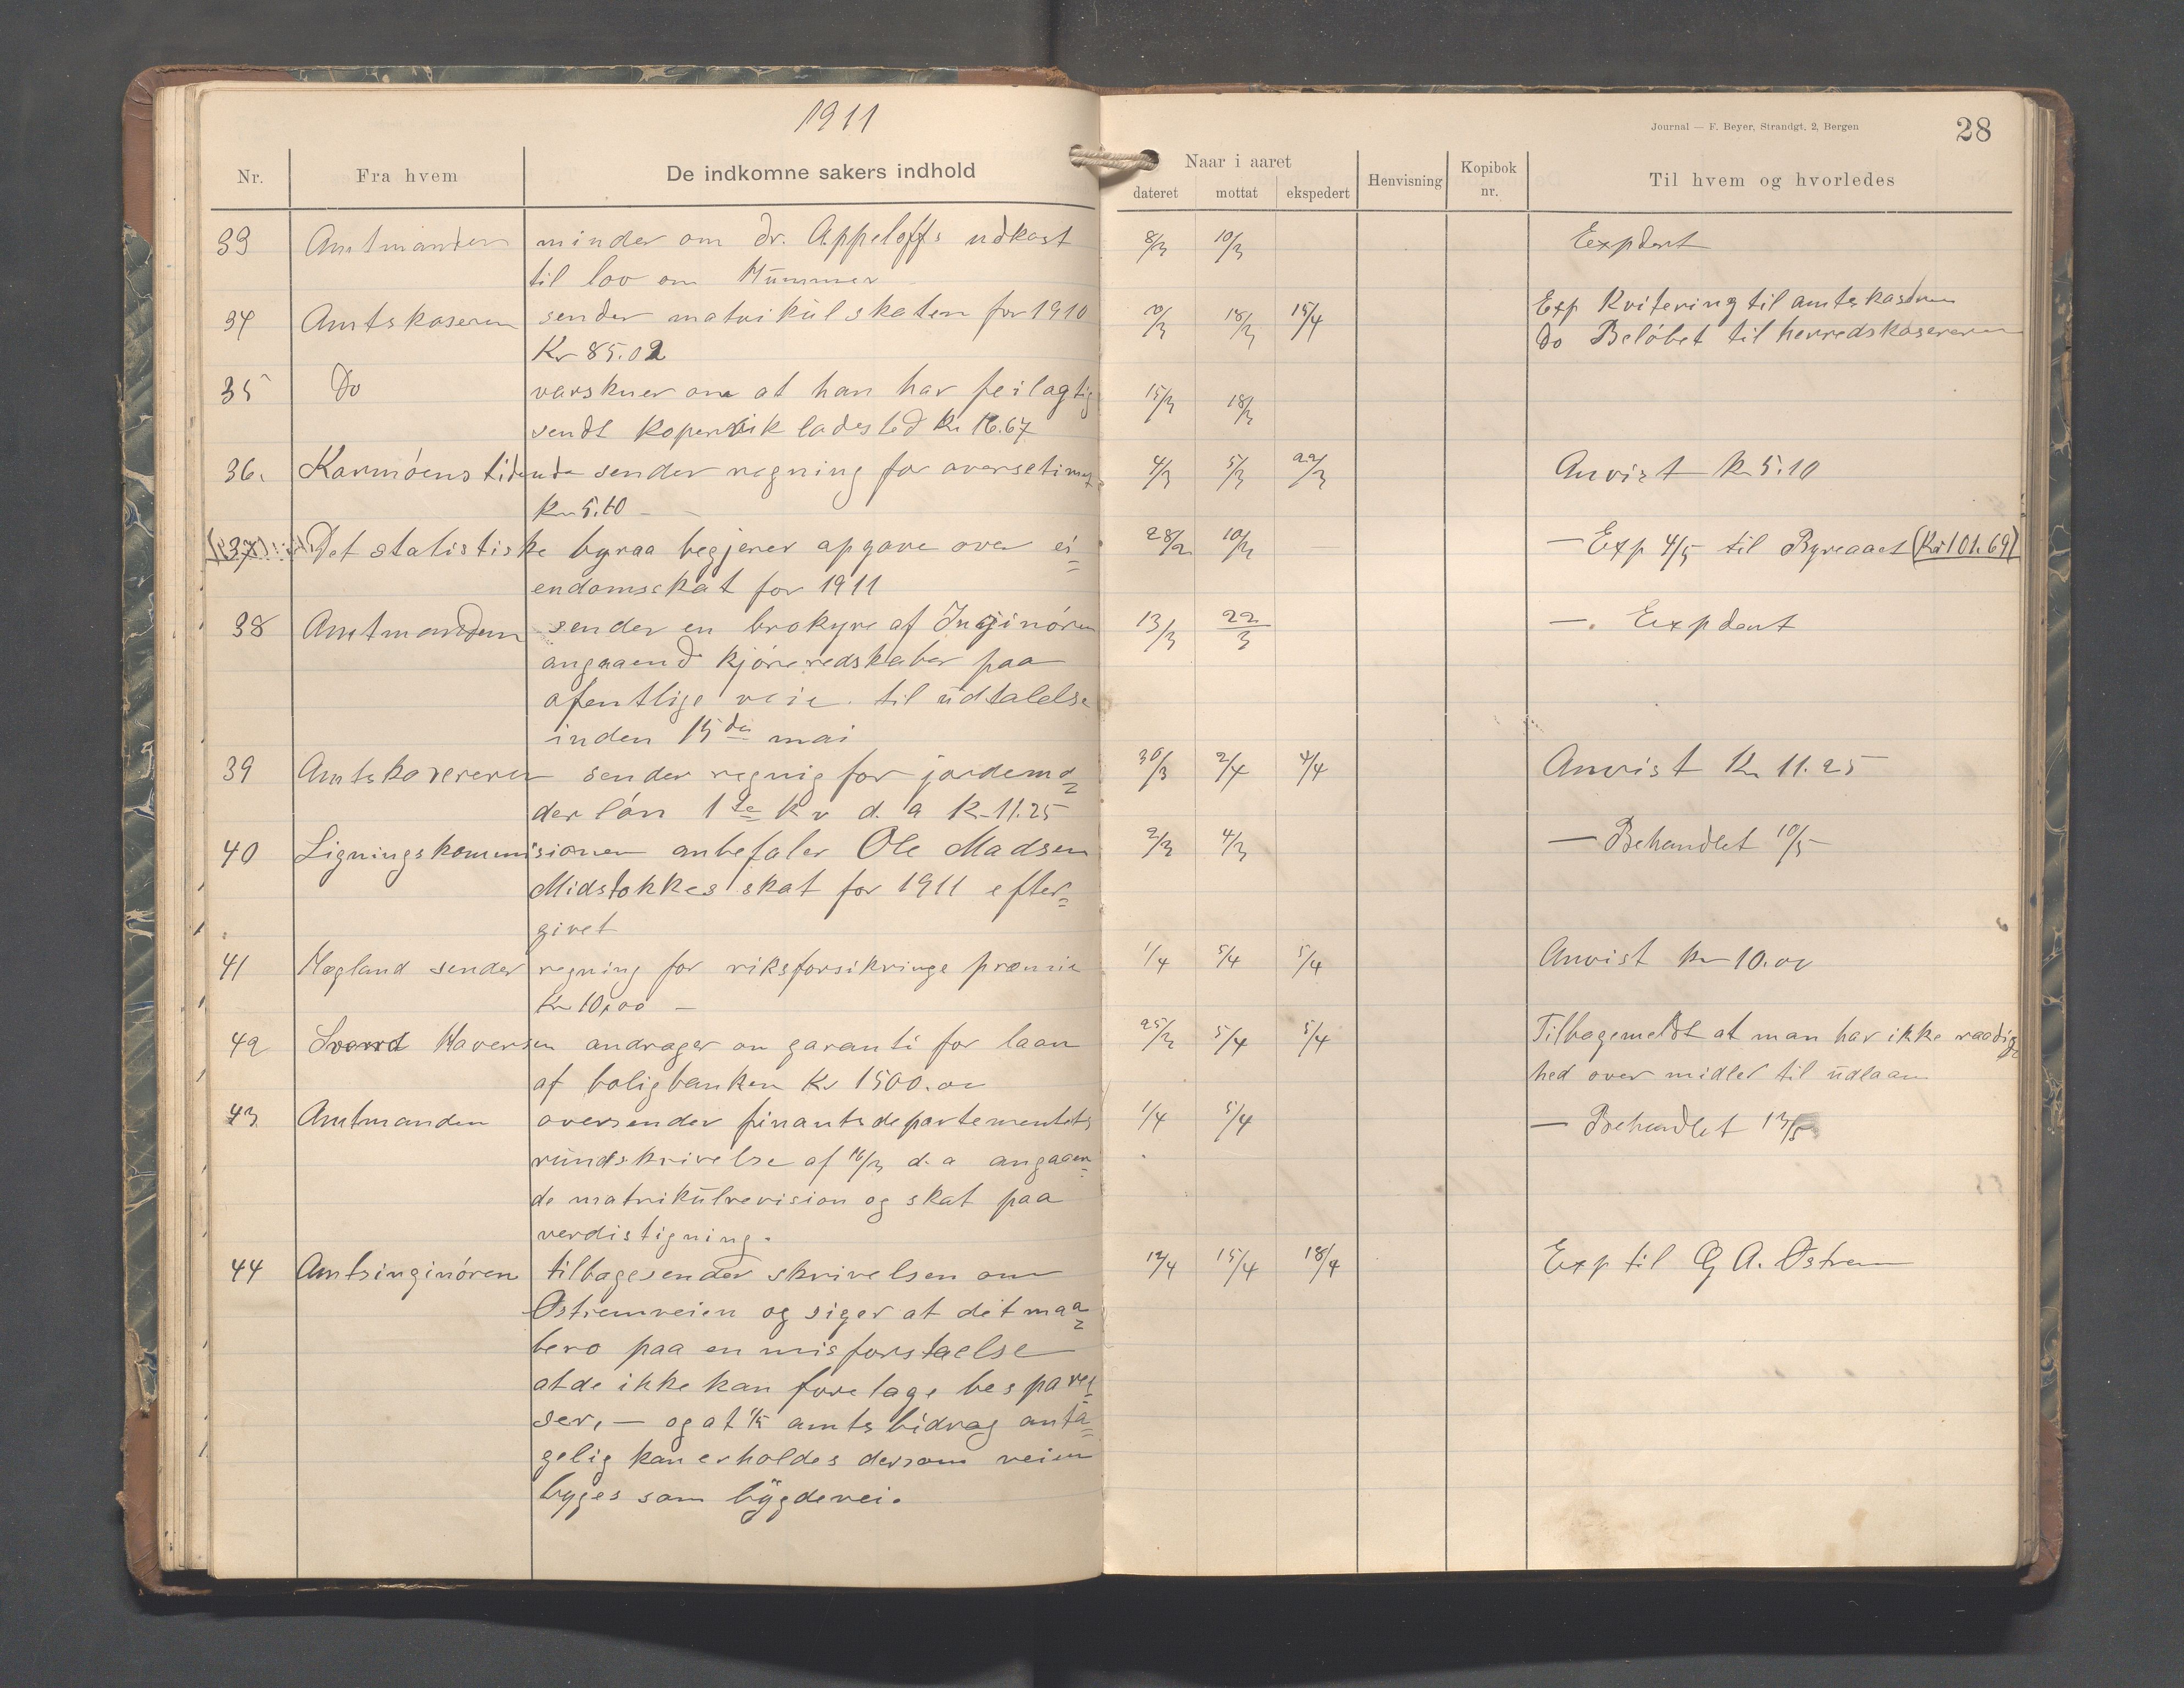 1911
Journal — F. Beyer, Strandgt. 2, Bergen
28
Nr. Fra hvem De indkomne sakers indhold Naar i aaret dateret mottat ekspedert Henvisning Kopibok nr. Til hvem og hvorledes
33 Amtmanden minder om dr. Appeloffs udkast 8/3 10/3 Expdert
til lov om Hummer
34 Amtskaseren sender matrikülskaten for 1910 10/3 18/3 15/4 Exp Kvitering til amtskaseren
Kr 85.02 do Belöbet til herredskasereren
35 Do varskuer om at han har feilagtig 15/3 18/3
sendt Kopervik ladested Kr 16.67
36. Karmöens tidende sender regning for avertsetiment 4/3 5/3 22/3 Anvist Kr 5.10
Kr 5.10 —
(37) Det statistiske byraa begjerer opgave over ei= 28/2 10/3 — Exp 4/5 til Byreaaet (Kr 101.69)
endomsskat for 1911
38 Amtmanden sender en brokyre af Inginören 13/3 22/3 —. Expdert
angaaend kjöreredskaber paa
ofentlige veie. til üdtalelse
inden 15de mai
39 Amtskasereren sender regnig for jordemo= 30/3 2/4 4/4 Anvist Kr 11.25
der lön 1ste Kv d. a K-11.25
40 Ligningskommisionen anbefaler Ole Madsen 2/3 4/3 — Behandlet 10/5
Midstokkes skat for 1911 efter=
givet
41 Hogland sender regning for riksforsikrings premie 1/4 5/4 5/4 Anvist Kr 10.00
Kr 10,00 —
42 Haversen andrager om garanti for laan 25/3 5/4 5/4 Tilbagemeldt at man har ikke raadig
af boligbanken Kr 1500.00 hed over midler til üdlaan
43 Amtmanden oversender finantsdepartementets 1/4 5/4 — Behandlet 13/5
rundskrivelse af 16/3 d. a angaaen=
de matrikülrevision og skat paa
verdistigning.
44 Amtsinginören tilbagesender skrivelsen om 12/4 15/4 18/4 Exp til G A. Østrem
Østremveien og siger at det maa=
bero paa en misforstaelse
at de ikke kan foretage besparel
ser, — og at 1/5 amts bidrag anta=
gelig kan erholdes dersom veien
byges som bÿgdevei.